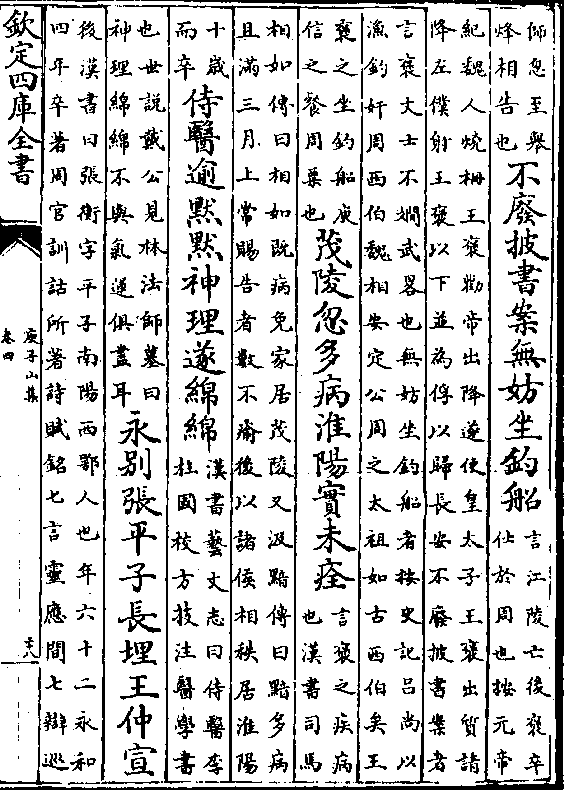 師忽至舉
烽相告也
不廢披書案無妨坐釣船
言江陵亡後襃卒
仕於周也按元帝
紀魏人燒柵王襃勸帝出降遂使皇太子王襃出質請
降左僕射王襃以下並為俘以歸長安不廢披書案者
言襃文士不嫺武畧也無妨坐釣船者按史記吕尚以
漁釣奸周西伯魏相安定公周之太祖如古西伯矣王
襃之坐釣船庾
信之餐周粟也
茂陵忽多病淮陽實未痊
言襃之疾病
也漢書司馬
相如傳曰相如既病免家居茂陵又汲黯傳曰黯多病
且滿三月上常賜告者數不瘉後以諸侯相秩居淮陽
十歲
而卒
侍醫逾默默神理遂綿綿
漢書藝文志曰侍醫李
柱國校方技注醫學書
也世説戴公見林法師墓曰
神理綿綿不與氣運俱盡耳
永别張平子長埋王仲宣
後漢書曰張衡字平子南陽西鄂人也年六十二永和
四年卒著周官訓詁所著詩賦銘七言靈應間七辯巡
欽定四庫全書
庾子山集
卷四